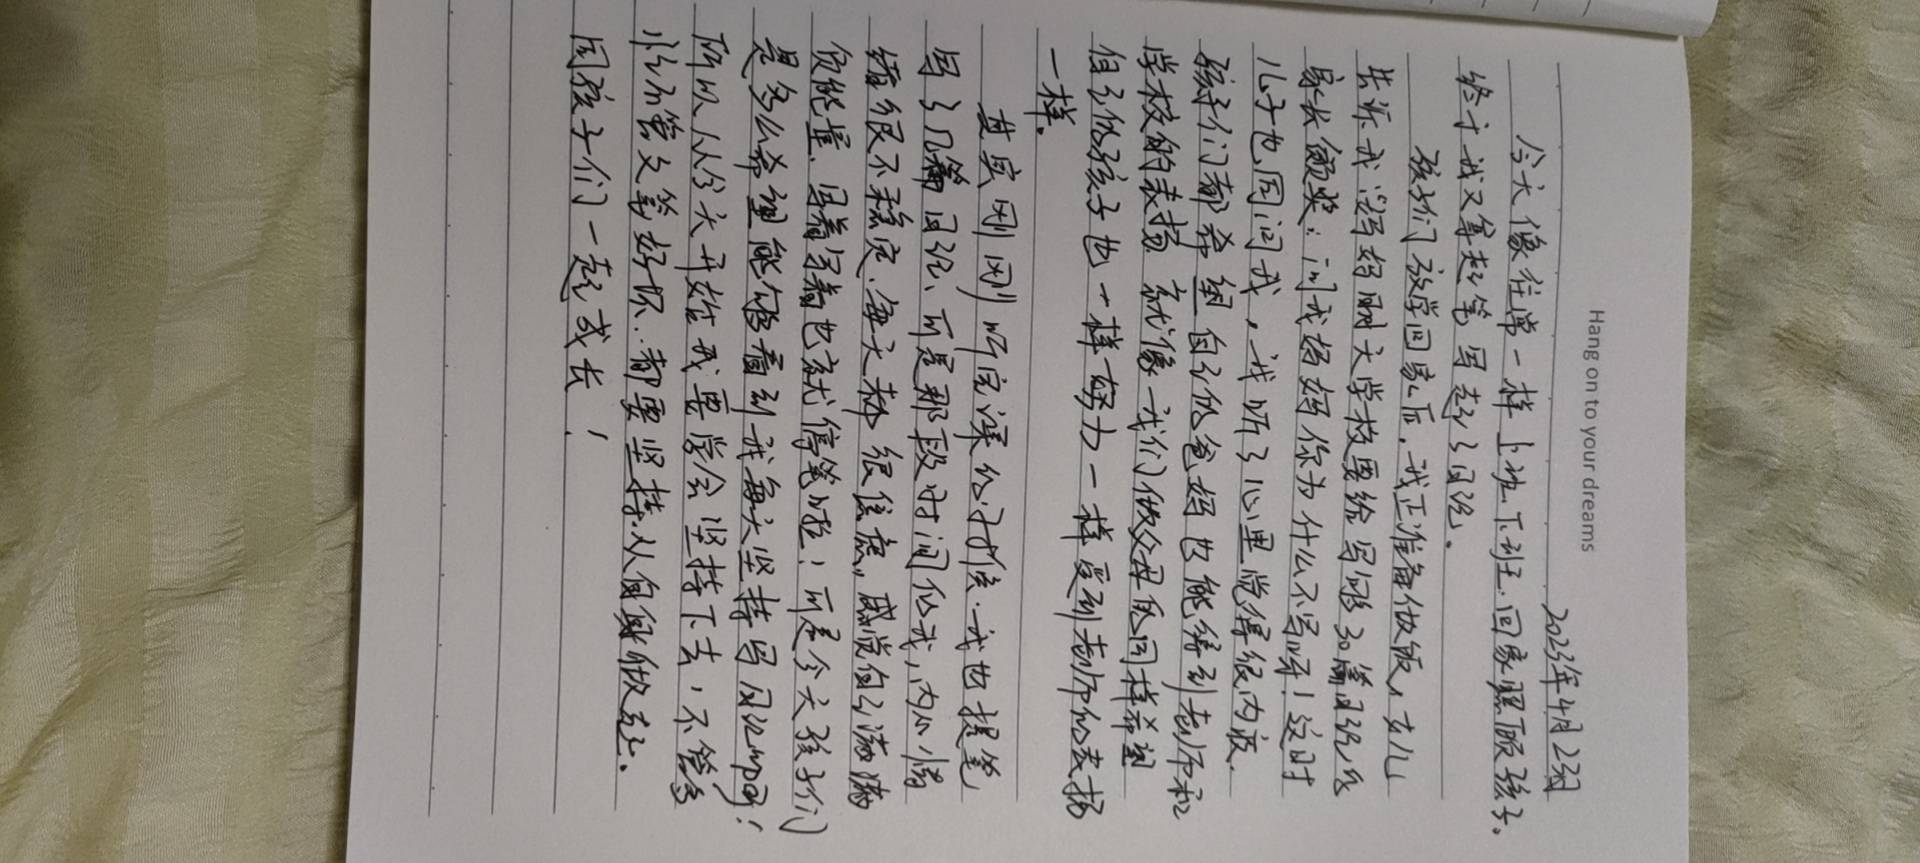 Hang on to your dreams
2023年4月23日
今天像往常一样上班.下班.回家照顾孩子。
终于我又拿起笔写起了日记。
孩子们放学回家后,我正准备做饭,女儿
告诉我说妈妈明天学校要给写够30篇日记的
家长颁奖;问我妈妈你为什么不写呀!这时
儿子也回问我,我听了心里觉得很内疚.
孩子们都希望自己的爸妈也能得到老师和
学校的表扬.就像我们做父母的同样希望
自己的孩子也一样努力一样受到老师的表扬
一样.
其实刚刚听完课的时候.我也提笔
写了几篇日记、可是那段时间的我,内心情
绪很不稳定.每天都很焦虑,感觉自己满满
负能量.写着写着也就停笔啦!可是今天孩子们
是多么希望能够看到我每天坚持写日记啊!
所以从今天开始我要学会坚持下去,不管多
少,不管文笔好坏.都要坚持.从自身做起.
同孩子们一起成长!